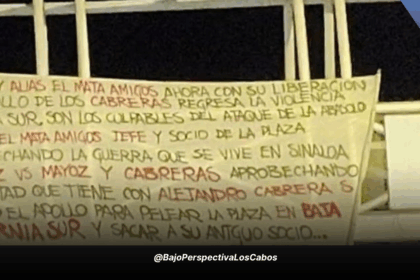 Y ALIAS EL MATA AMIGOS AHORA CON SU LIBERACION
LLO DE LOS CABRERAS REGRESA LA VIOLENCIA
SUR, SON LOS CULPABLES DEL ATAQUE DE LA
EL MATA AMIGOS JEFE Y SOCIO DE LA PLAZA
ECHANDO LA GUERRA QUE SE VIVE EN SINALOA
Z VS MAYOZ Y CABRERAS APROBECHANDO
TAD QUE TIENE CON ALEJANDRO CABRERA S
EL APOLLO PARA PELEAR LA PLAZA EN BAJA
RNIA SUR Y SACAR A SU ANTGUO SOCIO...
@BajoPerspectivaLosCabos